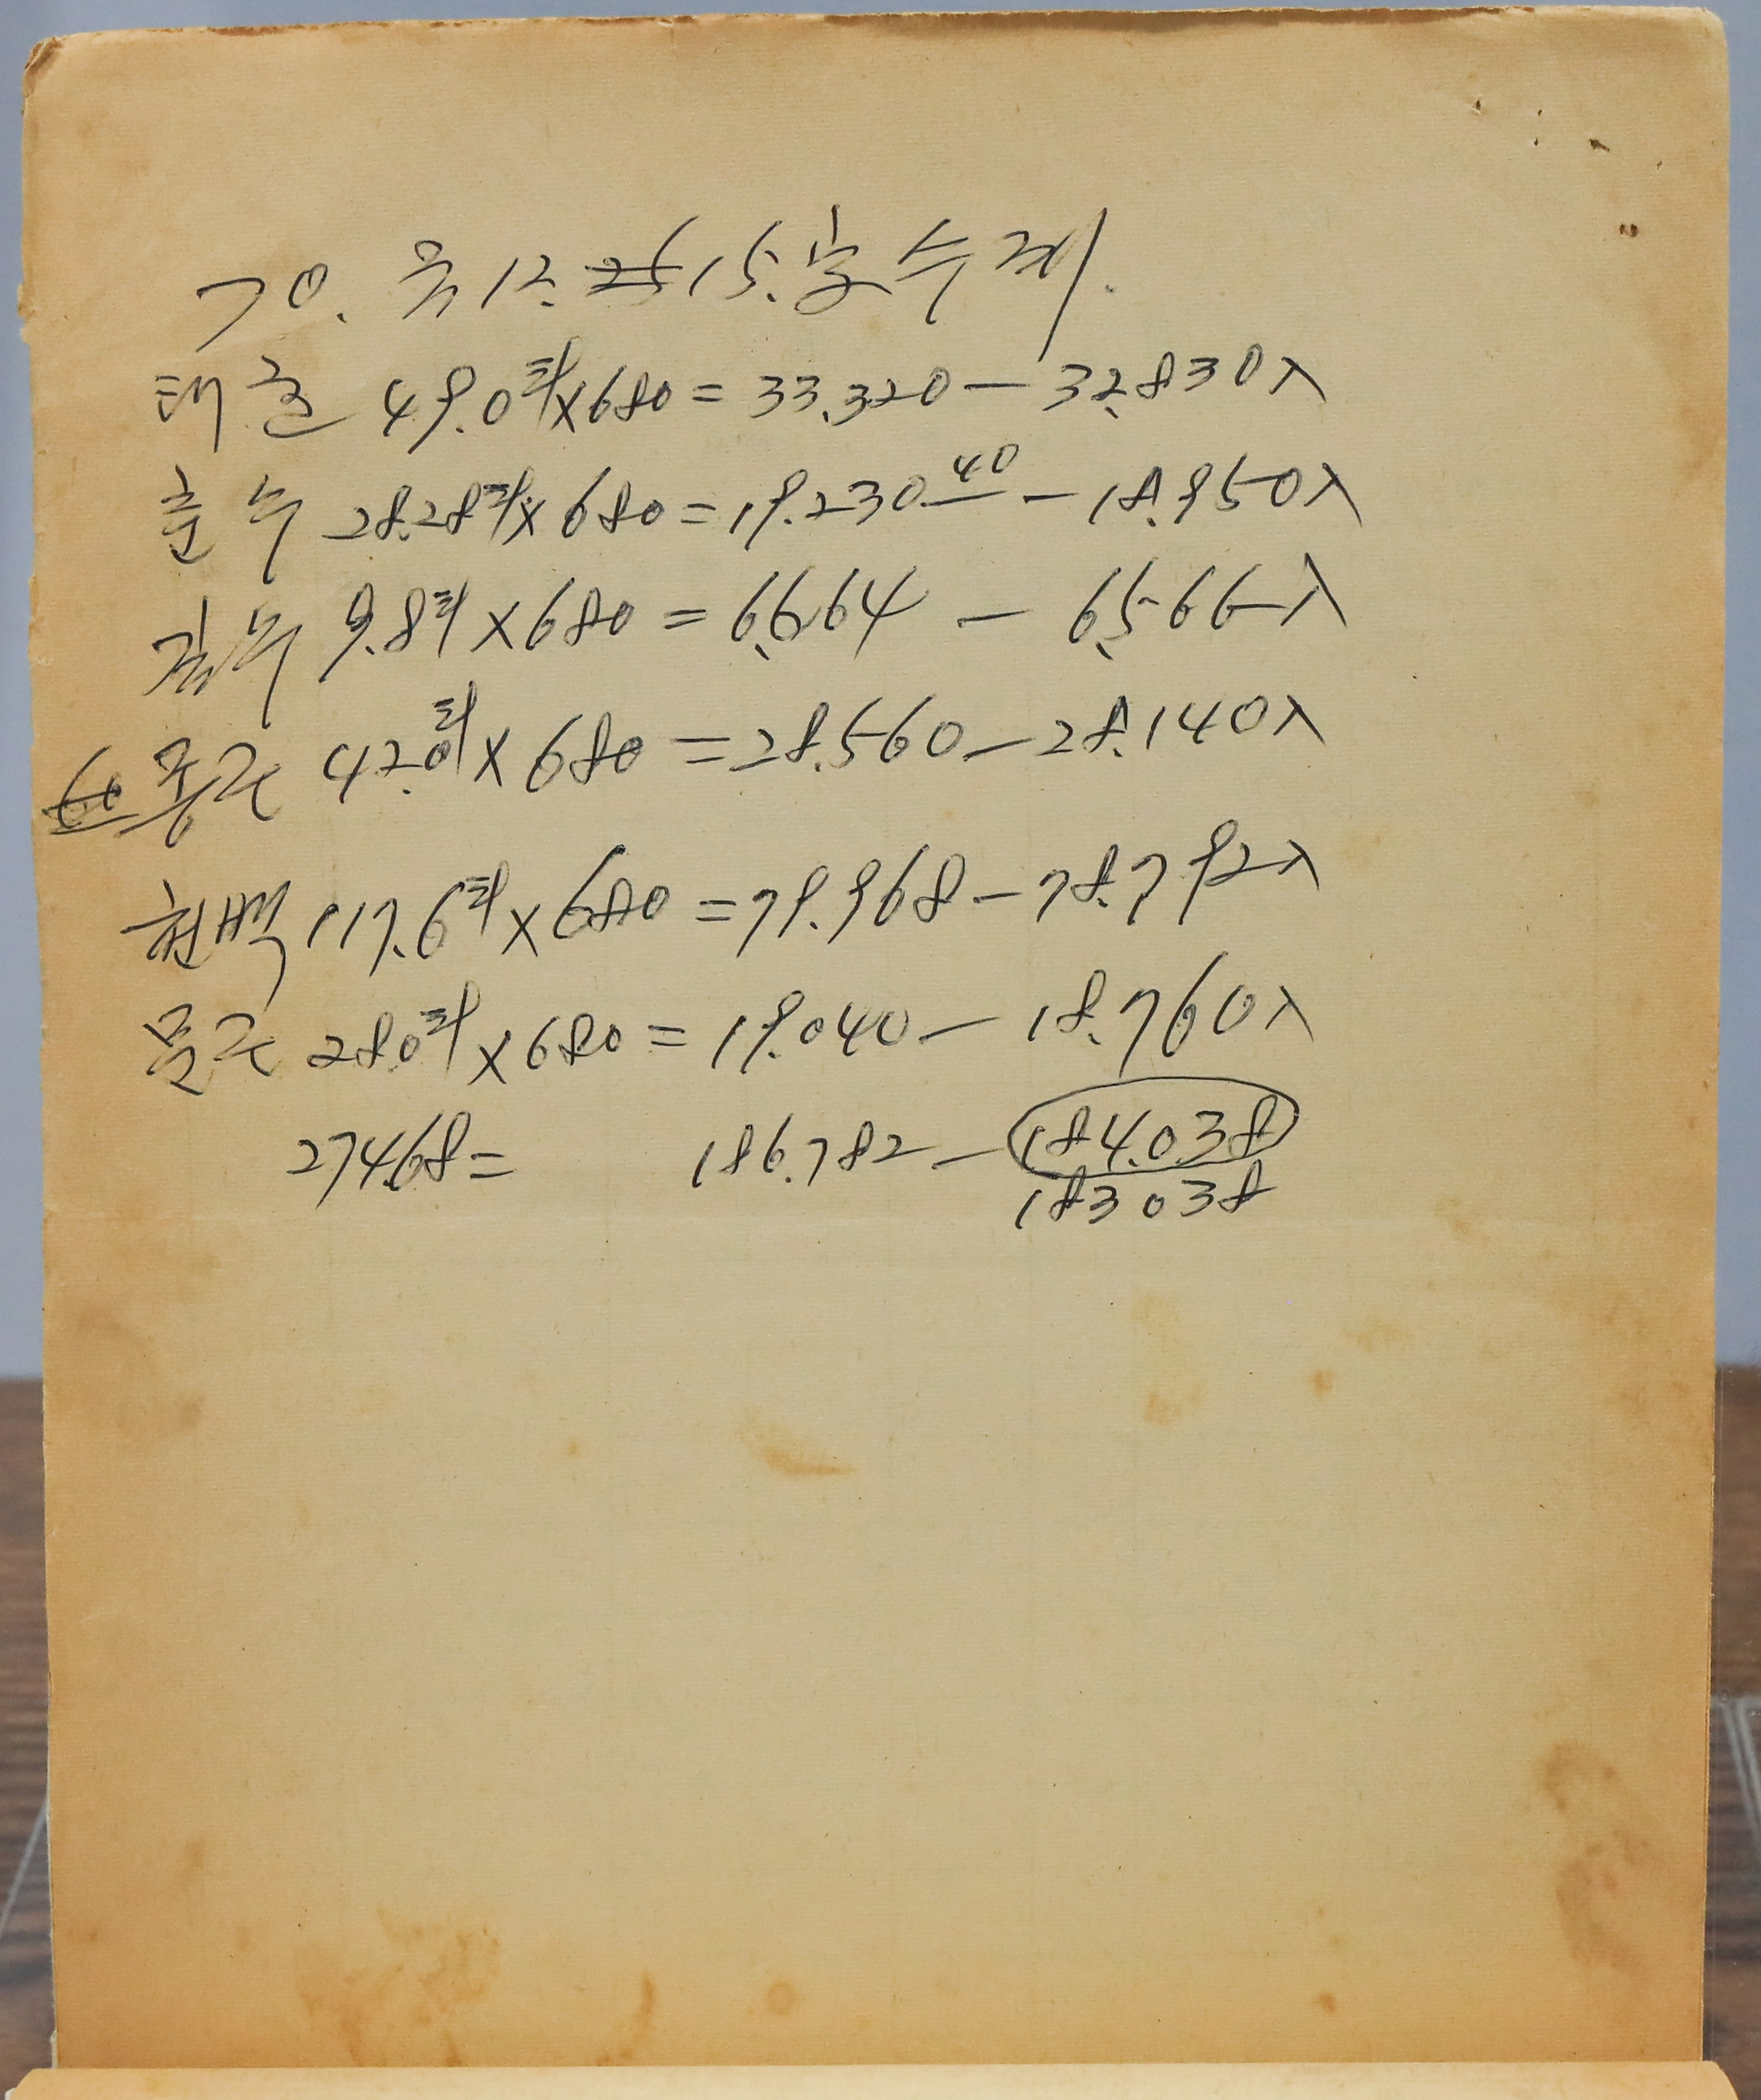 70. 음 12. 25 15. 분 수 계.
태준 49.0평×680 = 33.320 - 32.830入
춘수 28.28평×680 = 19.230.40 - 18.950入
길수 9.8평×680 = 6.664 - 6.566入
60 종근 42.0평×680 = 28.560 - 28.140入
천백 117.6평×680 = 79.968 - 78.792入
문근 28.0평×680 = 19.040 - 18.760入
274.68 = 186.782 - 184.038
183038